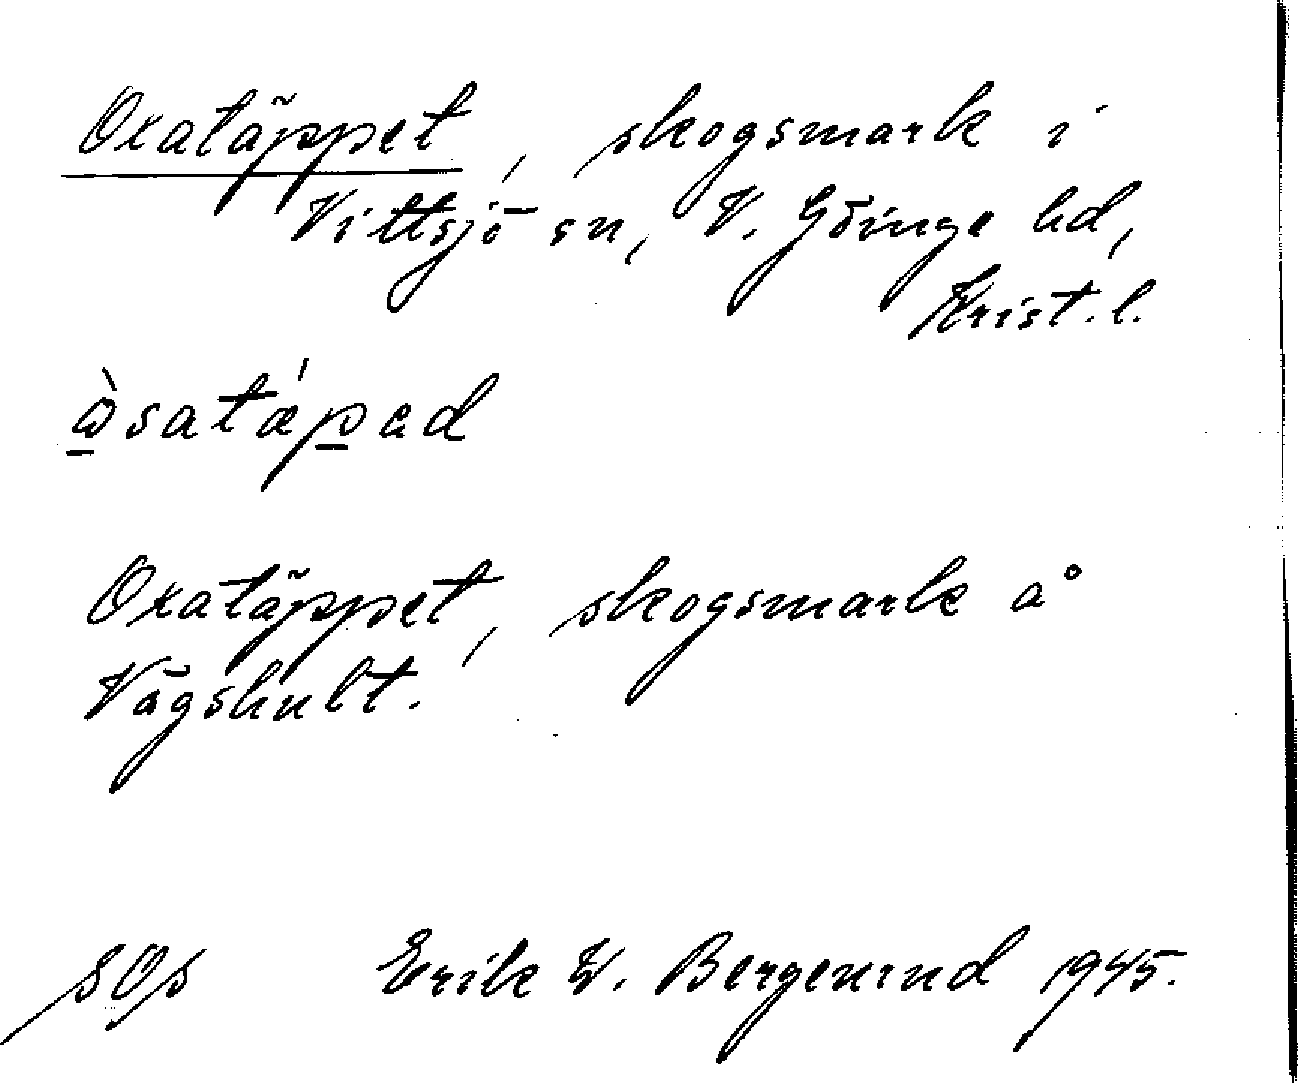 Oxatäppet, skogsmark i
Vittsjö sn, V. Göinge hd,
Krist. l.
Oxatäppet, skogsmark å
Vågshult.
Erik W. Bergenrud 1945.